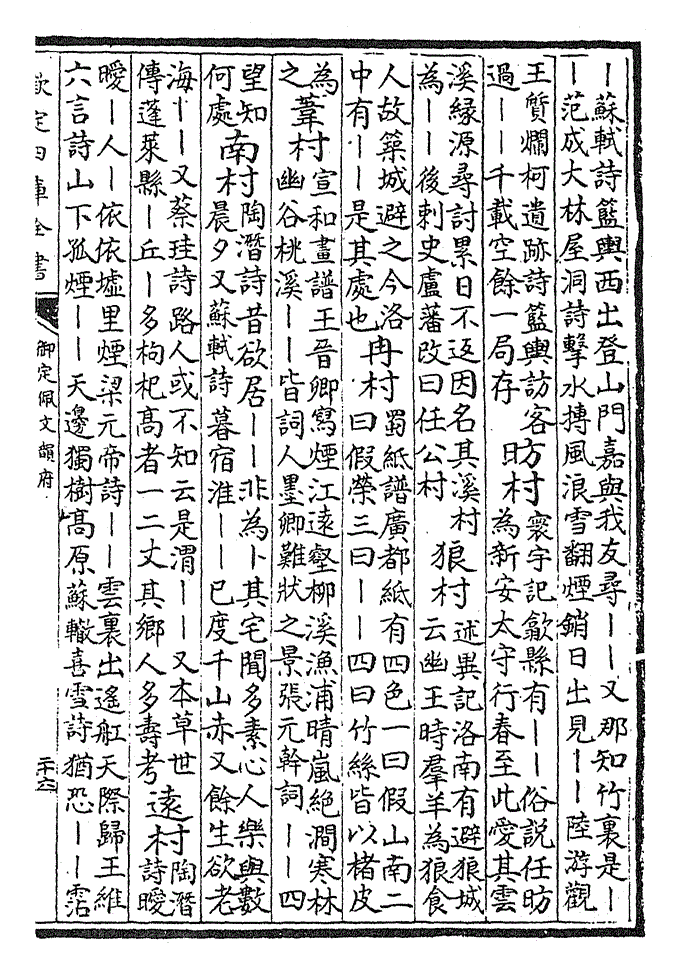 ｜蘇軾詩籃輿西出登山門嘉與我友尋｜｜又那知竹裏是｜
｜范成大林屋洞詩擊水搏風浪雪翻煙銷日出見｜｜陸游觀
王質爛柯遺跡詩籃輿訪客過｜｜千載空餘一局存 昉村 寰宇記歙縣有｜｜俗説任昉為新安太守行春至此愛其雲
溪緣源尋討累日不返因名其溪村為｜｜後刺史盧藩改曰任公村 狼村 述異記洛南有避狼城云幽王時羣羊為狼食
人故築城避之今洛中有｜｜是其處也 冉村 蜀紙譜廣都紙有四色一曰假山南二曰假榮三曰｜｜四曰竹絲皆以楮皮
為之 葦村 宣和畫譜王晉卿寫煙江遠壑柳溪漁浦晴嵐絶澗寒林幽谷桃溪｜｜皆詞人墨卿難狀之景張元幹詞｜｜四
望知何處 南村 陶潛詩昔欲居｜｜非為卜其宅聞多素心人樂與數晨夕又蘇軾詩暮宿淮｜｜已度千山赤又餘生欲老
海｜｜又蔡珪詩路人或不知云是渭｜｜又本草世傳蓬萊縣｜丘｜多枸杞髙者一二丈其鄉人多壽考 遠村 陶潛詩曖
曖｜人｜依依墟里煙梁元帝詩｜｜雲裏出遙舡天際歸王維
六言詩山下孤煙｜｜天邊獨樹髙原蘇轍喜雪詩猶恐｜｜霑
欽定四庫全書 御定佩文韻府 二十六